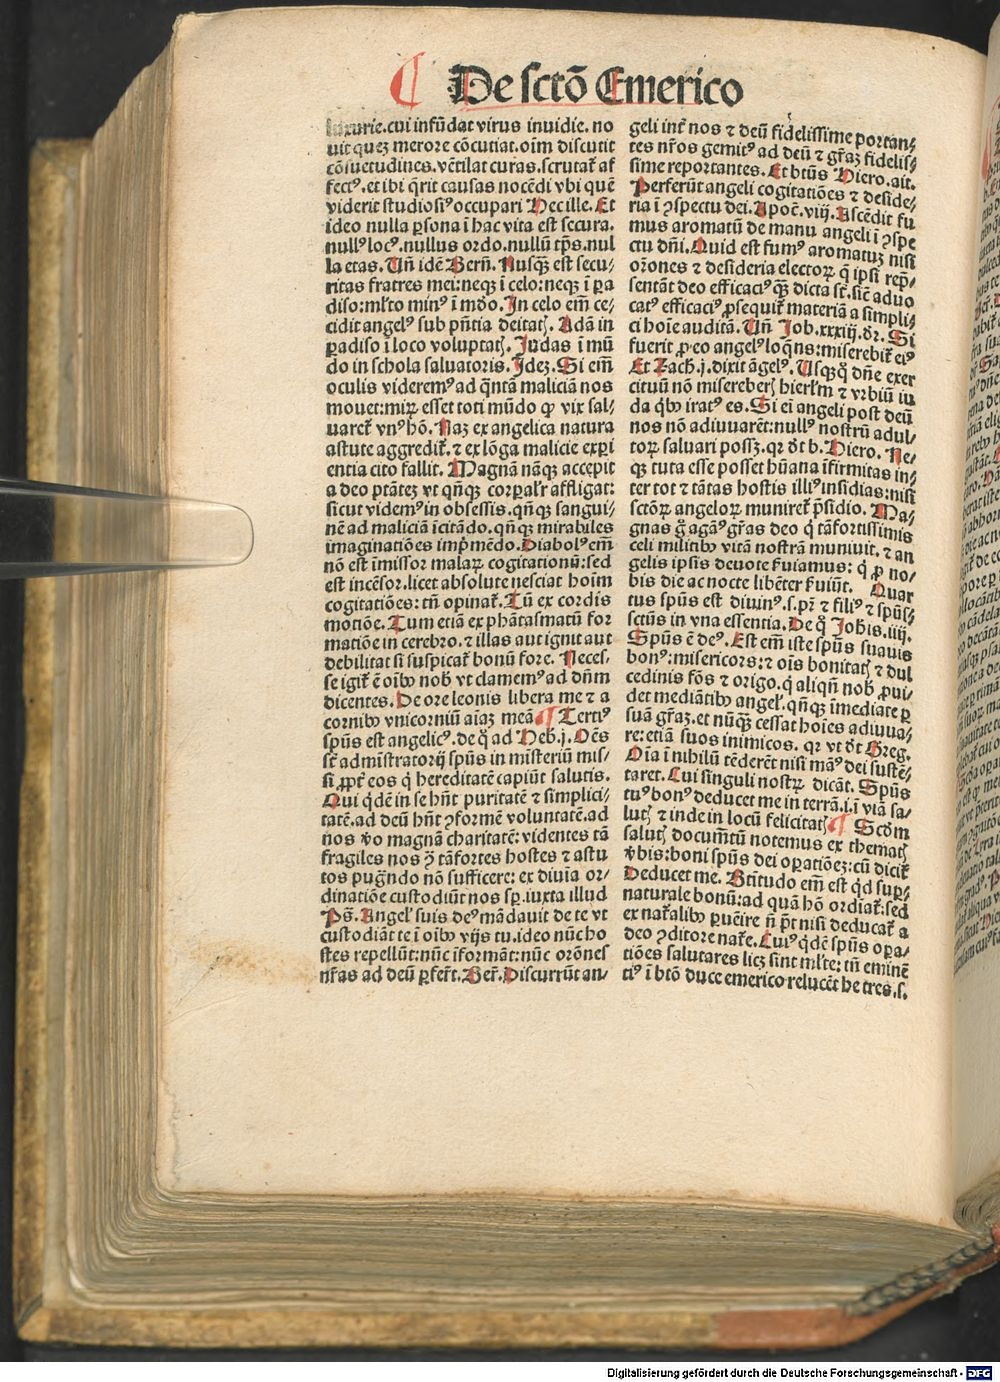 ¶ De sctō Emerico
luxurie.cui infūdat virus inuidie. no
uit quez merore cōcutiat.oīm discutit
cōsuetudines.vētilat curas.scrutat᷑ af
fectꝰ.et ibi q̄rit causas nocēdi vbi quē
viderit studiosiꝰ occupari Hec ille. Et
ideo nulla ꝑsona ī hac vita est secura.
nullꝰ locꝰ.nullus ordo.nullū tp̄s.nul
la etas. Uñ idē Berñ. Nusqȝ̄ est secu/
ritas fratres mei:neqȝ ī celo:neqȝ ī ꝑa
diso:ml̄to minꝰ ī mūdo. In celo em̄ ce/
cidit angelꝰ sub pn̄tia deitatꝭ. Adā in
ꝑadiso ī loco voluptatꝭ. Judas ī mū
do in schola saluatoris. Idez. Si em̄
oculis videremꝰ ad q̄ntā maliciā nos
mouet:miꝝ esset toti mūdo ꝙ vix sal/
uaret᷑ vnꝰ hō. Naz ex angelica natura
astute aggredit᷑. ⁊ ex lōga malicie exꝑi
entia cito fallit. Magnā nāqȝ accepit
a deo ptātez vt qn̄qȝ corꝑal'r affligat:
sicut videmꝰ in obsessis. qn̄qȝ sangui/
nē ad maliciā īcitādo. qn̄qȝ mirabiles
imaginatiōes impͥmēdo. Diabolꝰ em̄
nō est īmissor malaꝝ cogitationū:sed
est incēsor.licet absolute nesciat hoīm
cogitatiōes: tn̄ opinat᷑. Tū ex cordis
motiōe. Tum etiā ex phātasmatū for
matiōe in cerebro. ⁊ illas aut ignit aut
debilitat si suspicat᷑ bonū fore. Neces/
se igit᷑ ē oībꝰ nob̄ vt clamemꝰ ad dn̄m
dicentes. De ore leonis libera me ⁊ a
cornibꝰ vnicorniū aīaz meā ¶ Tertiꝰ
spūs est angelicꝰ. de q̊ ad Heb.j. Oēs
st̄ administratorij spūs in misteriū mis/
si ꝓpt̄ eos qͥ hereditatē capiūt salutis.
Qui qͥdē in se hn̄t puritatē ⁊ simplici/
tatē.ad deū hn̄t ꝯformē voluntatē.ad
nos v̄o magnā charitatē: videntes tā
fragiles nos ꝯ̄ tāfortes hostes ⁊ astu
tos pugn̄do nō sufficere: ex diuīa or/
dinatiōe custodiūt nos sꝑ.iuxta illud
Ps̄. Angelꝭ suis deꝰ mādauit de te vt
custodiāt te ī oībꝰ vijs tu.ideo nūc ho
stes repellūt:nūc īformāt:nūc orōnes
nr̄as ad deū ꝑfer̄t. Ber̄. Discurrūt an/
geli int̄ nos ⁊ deū fidelissime portan/
tes nr̄os gemitꝰ ad deū ⁊ gr̄az fidelis/
sime reportantes. Et btūs Hiero.ait.
Perferūt angeli cogitatiōes ⁊ deside/
ria ī ꝯspectu dei. Apoc̄. viij. Ascēdit fu
mus aromatū de manu angeli ī ꝯspe
ctu dn̄i. Quid est fumꝰ aromatuȝ nisi
orōnes ⁊ desideria electoꝝ q̄ ipsi rep̄/
sentāt deo efficaciꝰ qȝ̄ dicta st̄.sic̄ aduo
catꝰ efficaciꝰ ꝓsequit᷑ materiā a simpli/
ci hoīe auditā. Uñ Job.xxxiij.dr̄. Si
fuerit ꝓ eo angelꝰ loq̄ns:miserebit᷑ eiꝰ
Et Zach.j.dixit āgelꝰ. Usqȝq̊ dn̄e exer
cituū nō misereberꝭ hierl̄m ⁊ vrbiū iu
da qͥbꝰ iratꝰ es. Si ei angeli post deū
nos nō adiuuarēt:nullꝰ nostrū adul/
toꝝ saluari possȝ.qr̄ dt̄ b. Hiero. Ne/
qȝ tuta esse posset hūana īfirmitas in/
ter tot ⁊ tātas hostis illiꝰ insidias:nisi
sctōꝝ angeloꝝ muniret᷑ p̄sidio. Ma/
gnas g̊ agāꝰ gr̄as deo qͥ tāfortissimis
celi militibꝰ vitā nostrā muniuit. ⁊ an
gelis ipsis deuote ẜuiamus: qͥ ꝓ no/
bis die ac nocte libēter ẜuiūt. Quar
tus spūs est diuinꝰ.s.pr̄ ⁊ filiꝰ ⁊ spūs/
sctūs in vna essentia. De q̊ Johis.iiij.
Spūs ē deꝰ. Est em̄ iste spūs suauis
bonꝰ:misericors:⁊ oīs bonitatꝭ ⁊ dul
cedinis fōs ⁊ origo.qͥ aliqn̄ nob̄ ꝓui/
det mediātibꝰ angelꝭ.qn̄qȝ īmediate ꝑ
suā gr̄az.et nūqȝ cessat hoīes adiuua/
re:etiā suos inimicos. qr vt dt̄ Greg.
Oīa ī nihilū tēderēt nisi māꝰ dei sustē/
taret. Cui singuli nostꝝ dicāt. Spūs
tuꝰ bonꝰ deducet me in terrā.i.ī viā sa/
lutꝭ ⁊ inde in locū felicitatꝭ ¶ Scōm
salutꝭ documtū notemus ex thematꝭ
v̄bis:boni spūs dei oꝑatiōez:cū dicit᷑
Deducet me. Btitudo em̄ est qd̄ suꝑ/
naturale bonū:ad quā hō ordīat᷑:sed
ex nat᷑alibꝰ ꝑuēire n̄ pt̄ nisi deducat᷑ a
deo ꝯditore nat᷑e. Cuiꝰ qͥdē spūs oꝑa/
tiōes salutares licȝ sint ml̄te: tn̄ eminē
tiꝰ ī btō duce emerico relucēt he tres.s.
Digitalisierung gefördert durch die Deutsche Forschungsgemeinschaft - DFG